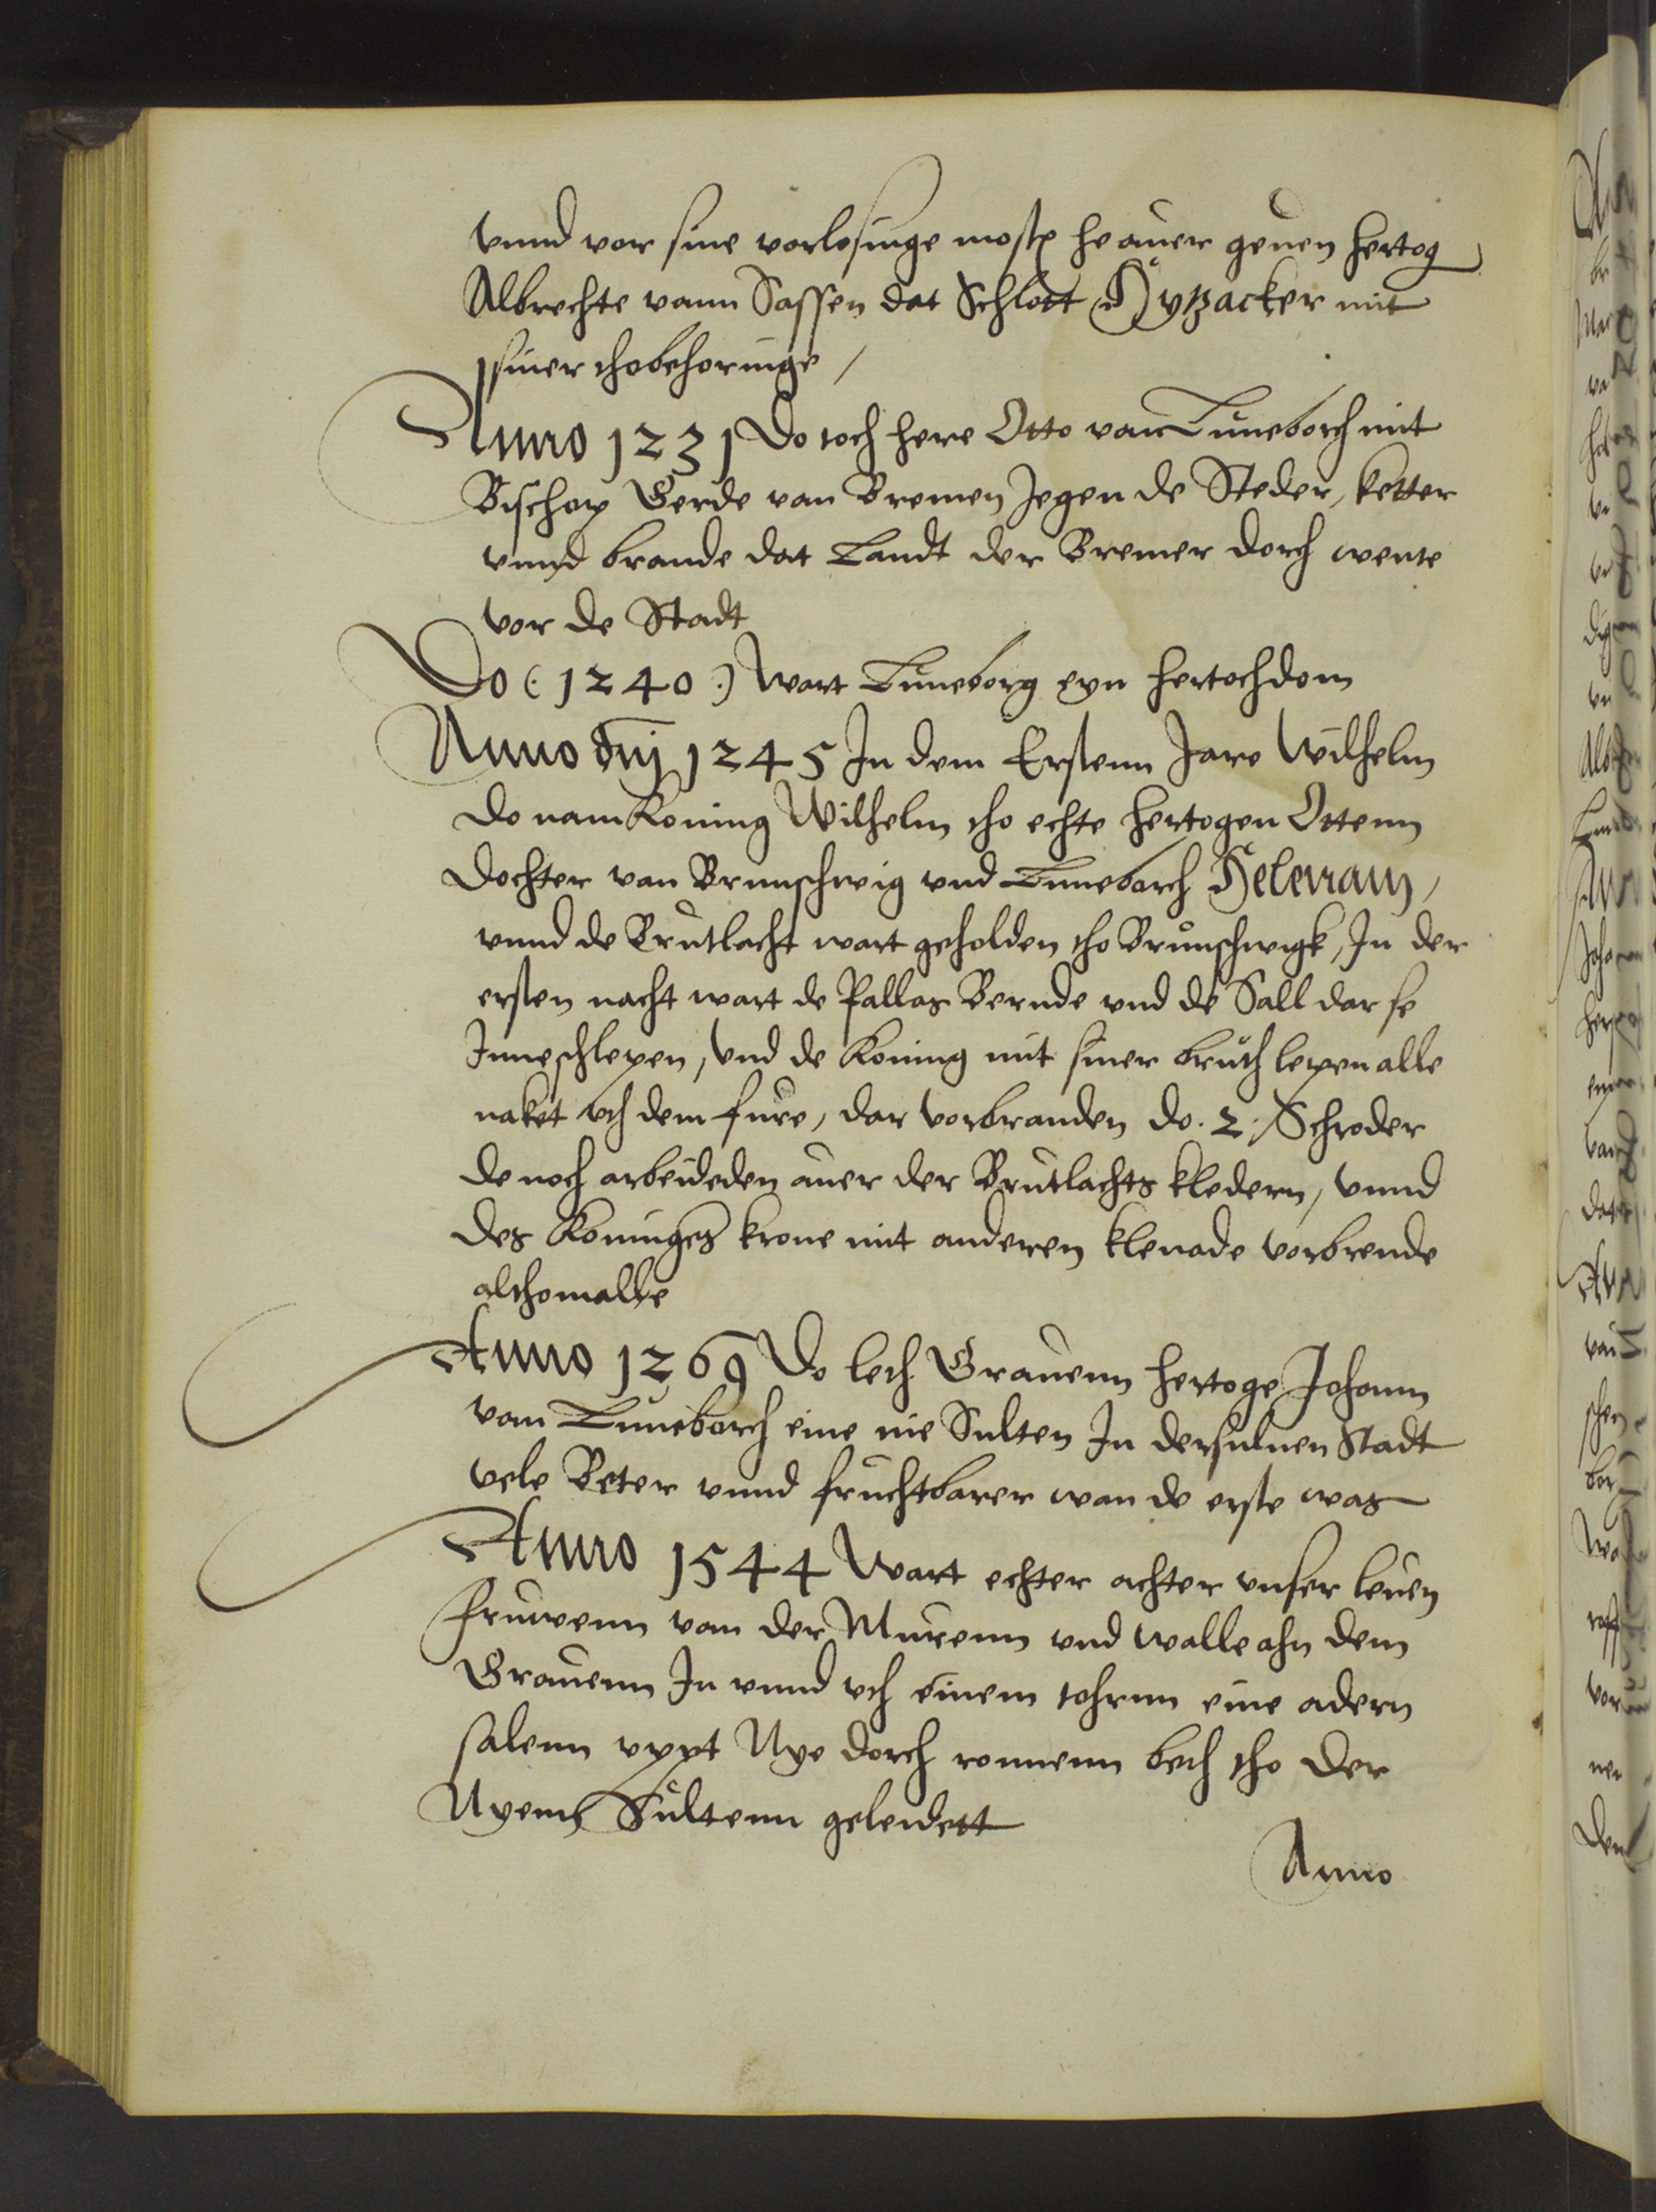 vnnd vor sine vorlosinge moste he auer geuen hertog
Albrechte vann Sassen dat Schlott Hytzacker mit
siner thobehoringe /
Anno 1231 Do toch here Otto van Luneborch mit
Bischop Gerde van Bremen Jegen de Steder, ketter
vnnd brande dat Landt der Bremer dorch wente
vor de Stadt
Do (: 1240 :) Wart Luneborg eyn hertochdom
Anno dnj 1245 In dem Erstenn Jare Wilhelm
do nam Koning Wilhelm tho echte hertogen Ottenn
dochter van Brunschwig vnd Luneborch Helenam,
vnnd de Brutlacht wart geholden tho Brunschwigk, In der
ersten nacht wart de Pallas Bernde vnd de Sall dar se
Inneschlepen, vnd de Koning mit siner bruth lepen alle
naket vth dem fure, dar vorbranden do . 2 . Schroder
de noch arbeideden auer der Brutlachts kledern, vnnd
des Koninges krone mit anderen klenade vorbrende
althomalle
Anno 1269 Do leth Grauenn hertoge Johann
van Luneborch eine nie Sulten In dersuluen Stadt
vele Beter vnnd fruchtbarer wan de erste was
Anno 1544 Wart echter achter vnser leuen
fruwenn van der Murenn vnd walle ahn dem
Grauenn In vnnd vth einem tohrnn eine adern
salenn vppt Nye dorch ronnenn beth tho der
Nyenn Sultenn geleidett
Anno